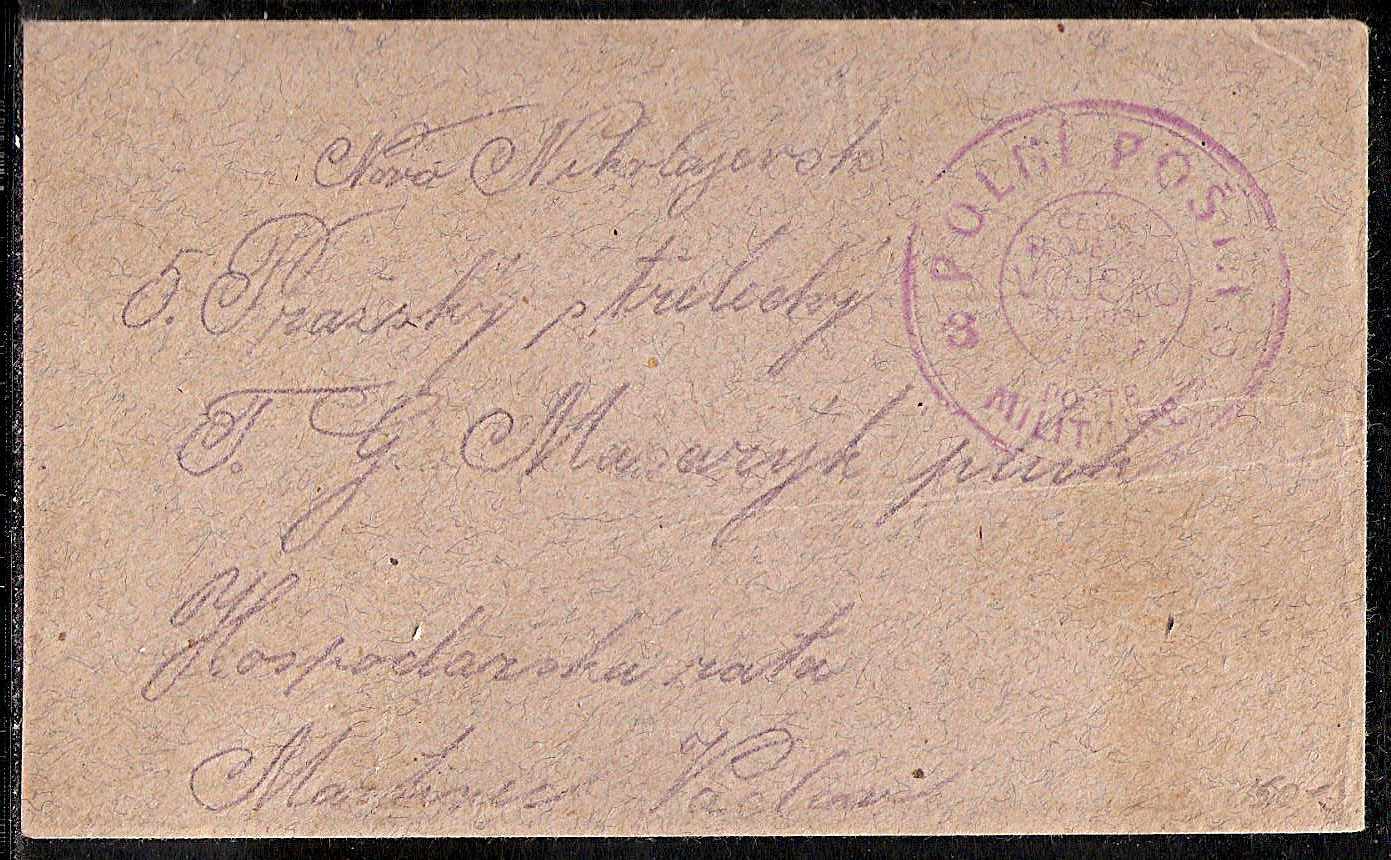 Novo Nikolajevsk
5. Pražský střelecky
T. G Masaryk pluk
Hospodářska rata
Martinec Václav
8 POLNÍ POŠTA
VOJSKO
POSTE
MILITAIRE
150-